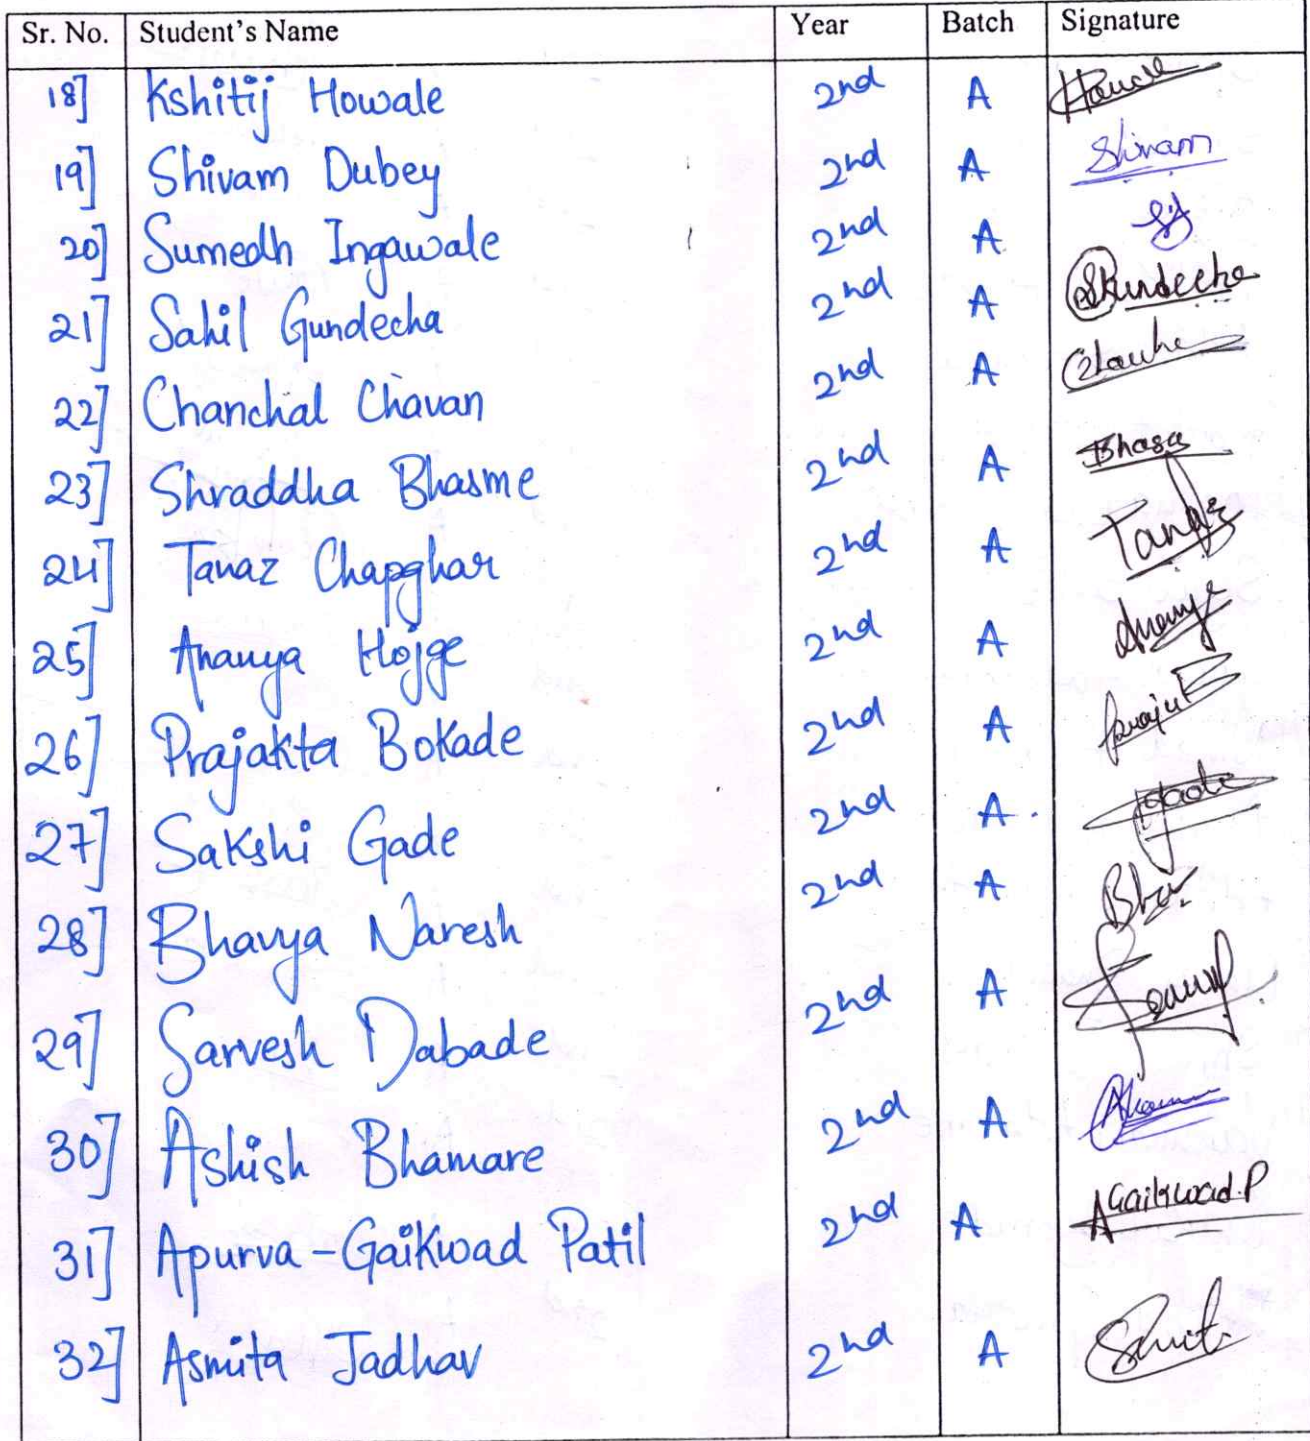 Sr. No. Student's Name Year Batch Signature
18] Kshitij Howale 2nd A
19] Shivam Dubey 2nd A Shivam
20] Sumedh Ingawale 2nd A
21] Sahil Gundecha 2nd A
22] Chanchal Chavan 2nd A
23] Shraddha Bhasme 2nd A
24] Tanaz Chapghar 2nd A Tanaz
25] Ananya Hojge 2nd A
26] Prajakta Bokade 2nd A
27] Sakshi Gade 2nd A
28] Bhavya Naresh 2nd A
29] Sarvesh Dabade 2nd A
30] Ashish Bhamare 2nd A
31] Apurva-Gaikwad Patil 2nd A AGaikwad.P
32] Asmita Jadhav 2nd A